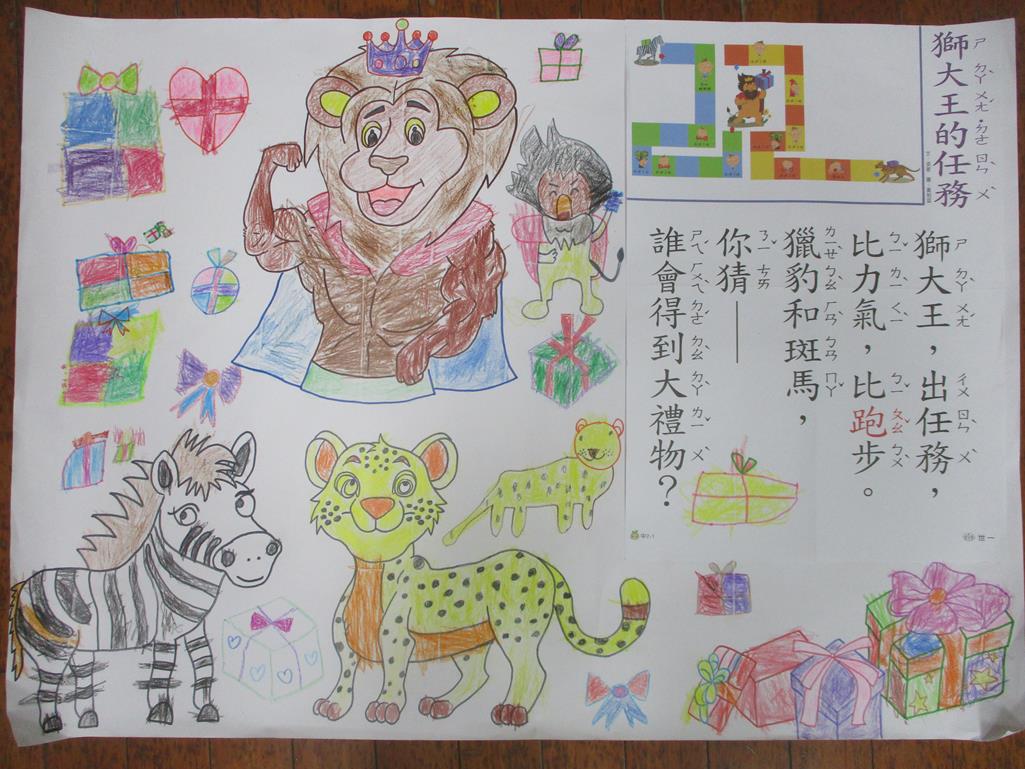 獅大王的任務
獅大王，出任務，
比力氣，比跑步。
獵豹和斑馬，
你猜——
誰會得到大禮物？
世一